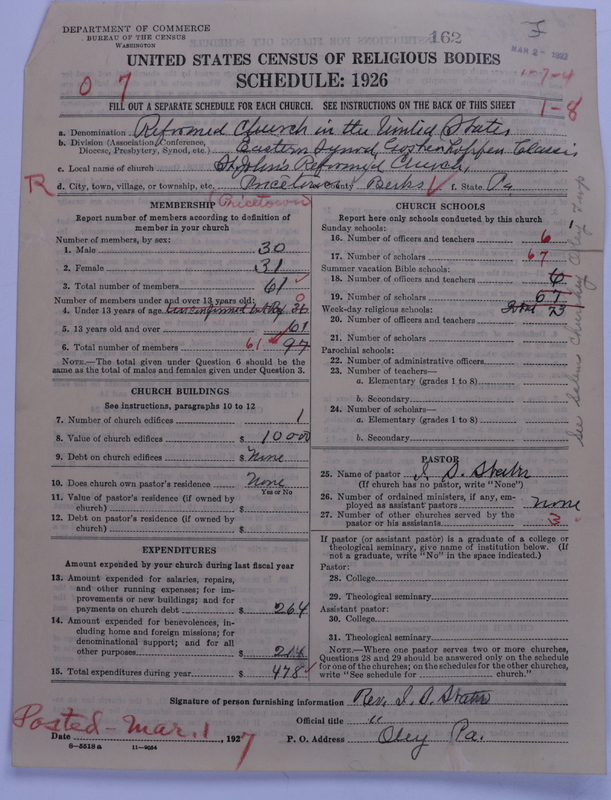 DEPARTMENT OF COMMERCE
BUREAU OF THE CENSUS
WASHINGTON
162
MAR 2- 1927
UNITED STATES CENSUS OF RELIGIOUS BODIES
SCHEDULE: 1926
0 7
1-7-4
1-8
FILL OUT A SEPARATE SCHEDULE FOR EACH CHURCH. SEE INSTRUCTIONS ON THE BACK OF THIS SHEET
a. Denomination Reformed Church in the United States
b. Division (Association, Conference, Diocese, Presbytery, Synod, etc.) Eastern Synod, Classis
c. Local name of church St. John's Reformed Church,
R
d. City, town, village, or township, etc. Pricetown County Berks f. State Pa
Pricetown
MEMBERSHIP
Report number of members according to definition of member in your church
Number of members, by sex:
1. Male 30
2. Female 31
3. Total number of members 61
Number of members under and over 13 years old:
4. Under 13 years of age 0
5. 13 years old and over 61
6. Total number of members 61 97
NOTE.—The total given under Question 6 should be the same as the total of males and females given under Question 3.
CHURCH BUILDINGS
See instructions, paragraphs 10 to 12
7. Number of church edifices 1
8. Value of church edifices $ 10000
9. Debt on church edifices $ None
10. Does church own pastor's residence? None
Yes or No
11. Value of pastor's residence (if owned by church) $
12. Debt on pastor's residence (if owned by church) $
EXPENDITURES
Amount expended by your church during last fiscal year
13. Amount expended for salaries, repairs, and other running expenses; for improvements or new buildings; and for payments on church debt $ 264
14. Amount expended for benevolences, including home and foreign missions; for denominational support; and for all other purposes $ 214
15. Total expenditures during year $ 478
CHURCH SCHOOLS
Report here only schools conducted by this church
Sunday schools:
16. Number of officers and teachers 6
17. Number of scholars 67
Summer vacation Bible schools:
18. Number of officers and teachers 6
19. Number of scholars 67
Week-day religious schools: Total 73
20. Number of officers and teachers
21. Number of scholars
Parochial schools:
22. Number of administrative officers
23. Number of teachers—
a. Elementary (grades 1 to 8)
b. Secondary
24. Number of scholars—
a. Elementary (grades 1 to 8)
b. Secondary
PASTOR
25. Name of pastor I. S. Stahr
(If church has no pastor, write "None")
26. Number of ordained ministers, if any, employed as assistant pastors none
27. Number of other churches served by the pastor or his assistants 3
If pastor (or assistant pastor) is a graduate of a college or theological seminary, give name of institution below. (If not a graduate, write "No" in the space indicated.)
Pastor:
28. College
29. Theological seminary
Assistant pastor:
30. College
31. Theological seminary
NOTE.—Where one pastor serves two or more churches, Questions 28 and 29 should be answered only on the schedule for one of the churches; on the schedules for the other churches, write "See schedule for church."
See Salems Church, Oley Twp
Signature of person furnishing information Rev. I. S. Stahr
Official title "
Posted - Mar. 1
Date , 1927
P. O. Address Oley Pa.
8-5518 a 11-9034